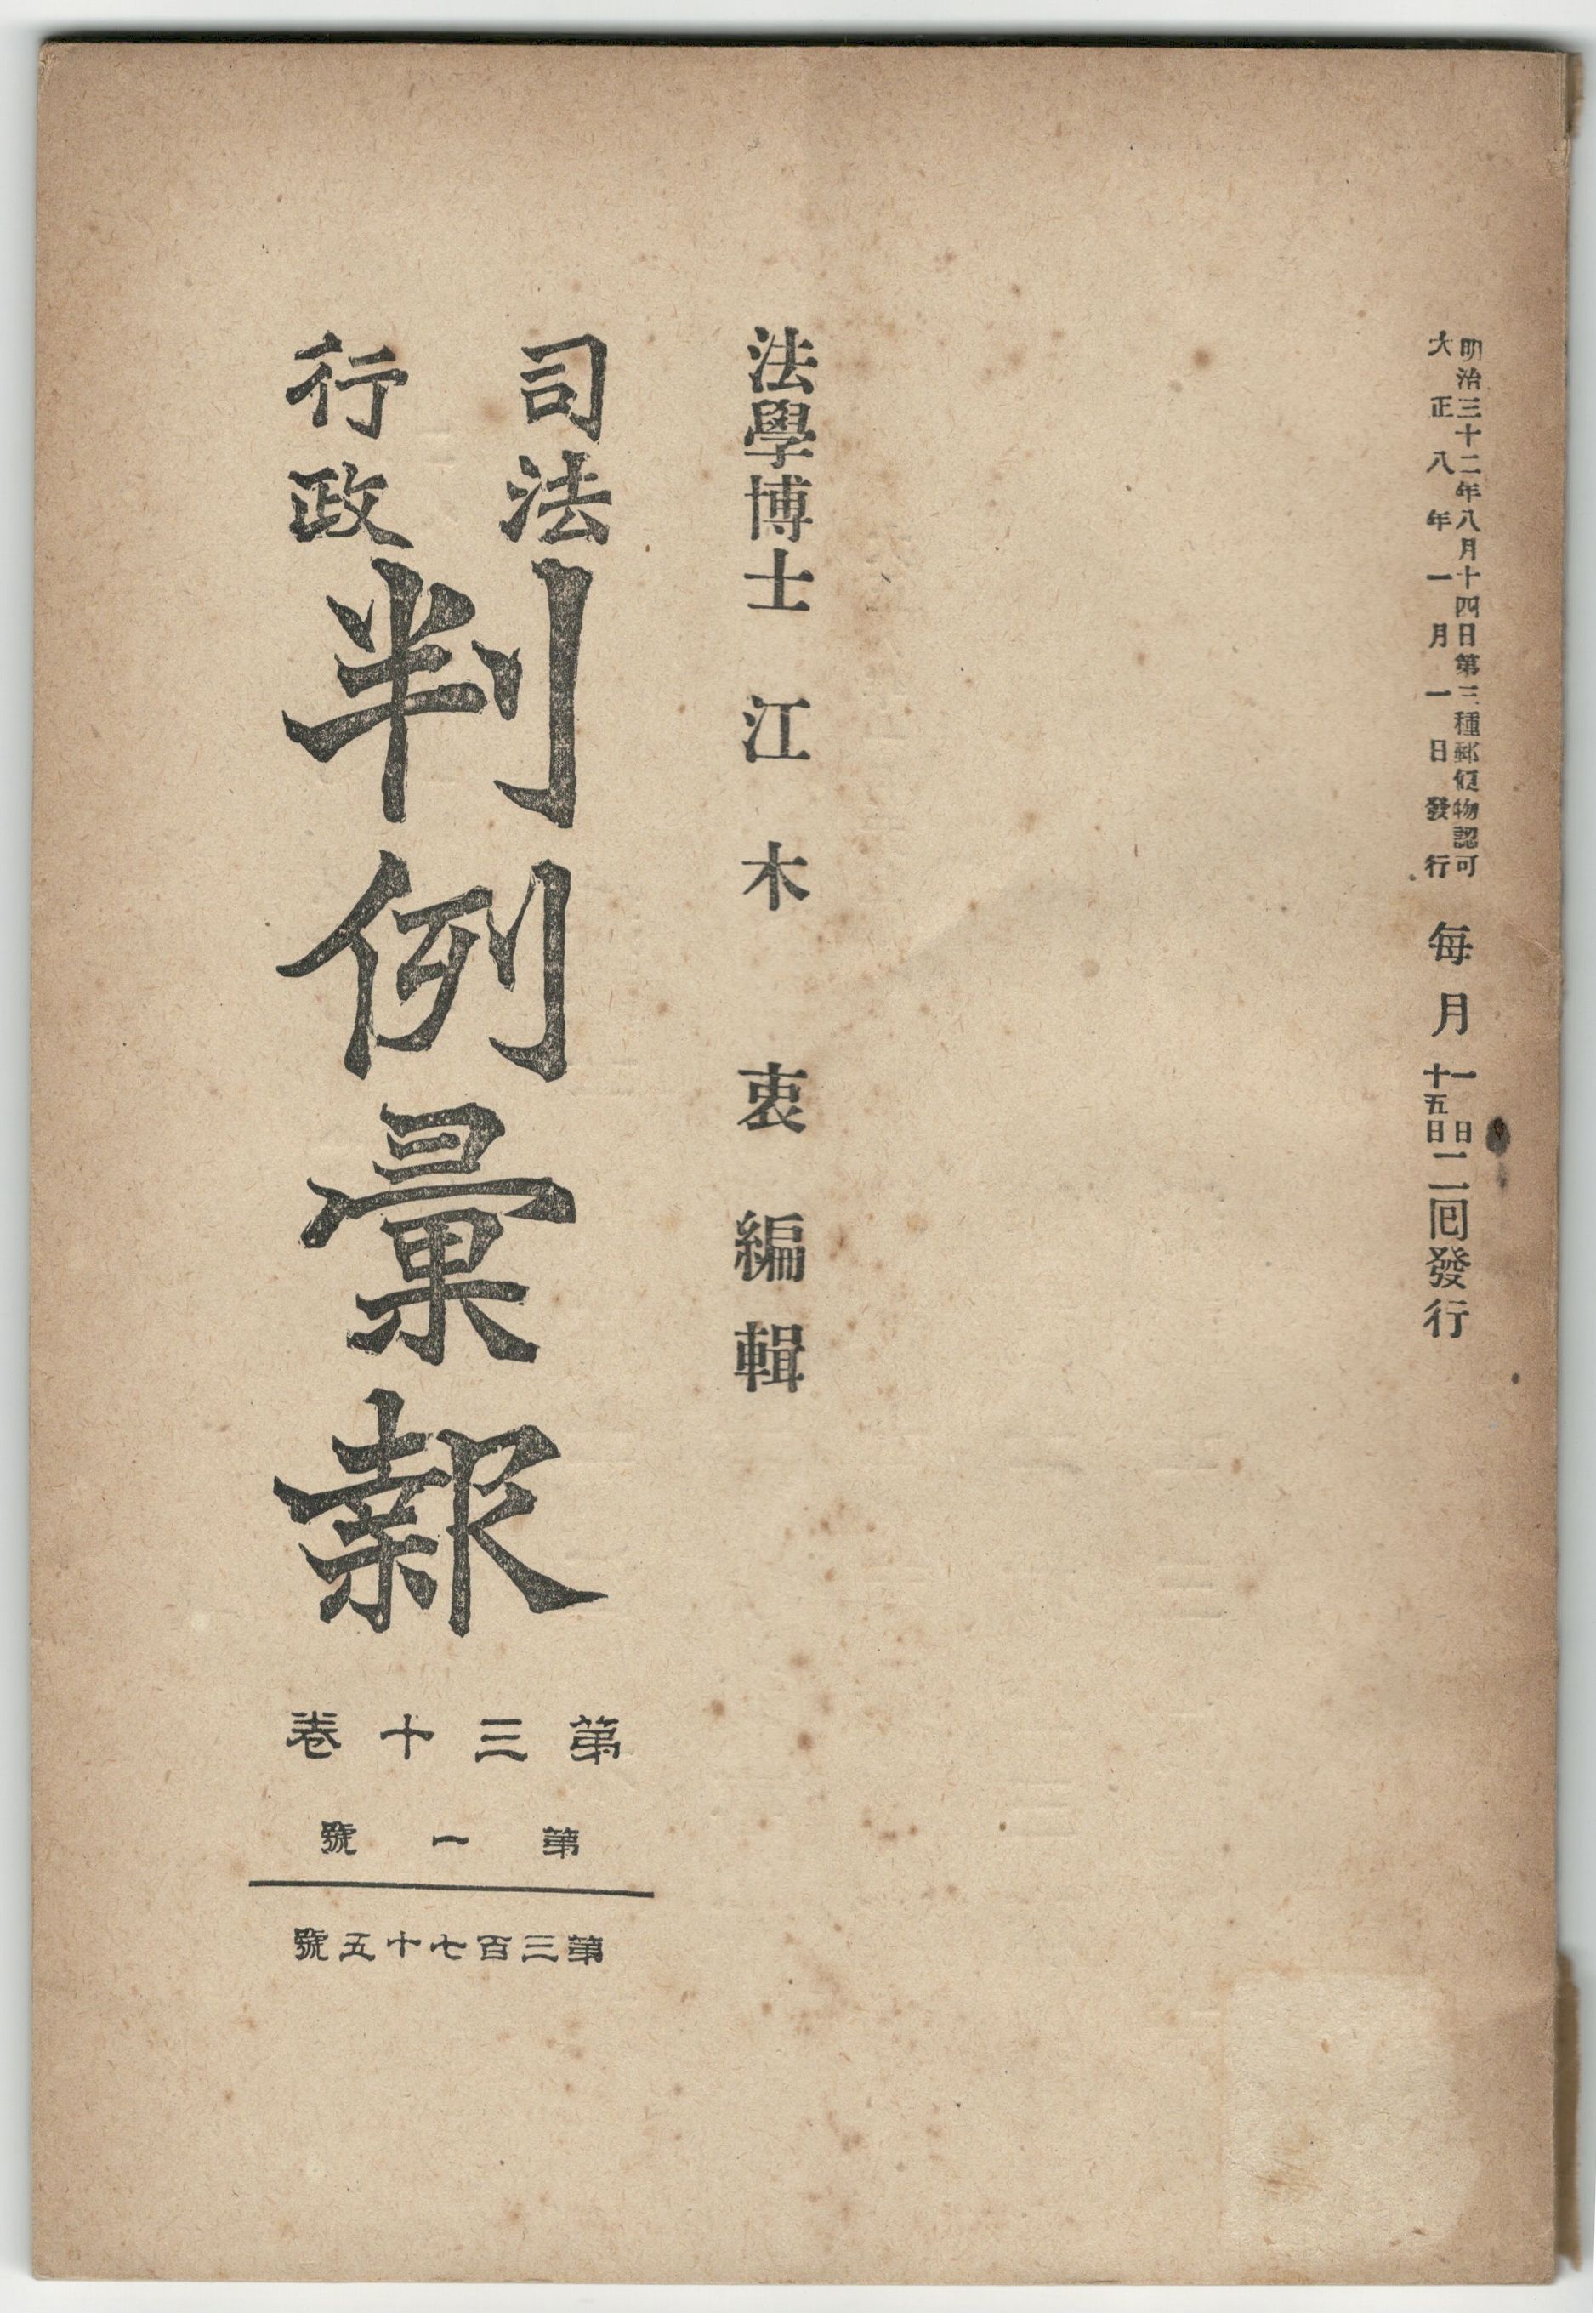 明治三十二年八月十四日第三種郵便物認可
大正八年一月一日發行
毎月一日十五日二囘發行
法學博士 江木 衷 編輯
司法
行政
判例彙報
第三十卷
第一號
第三百七十五號